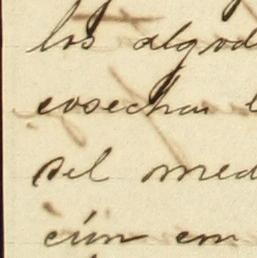 los algod
cosechar l
del med
ción em